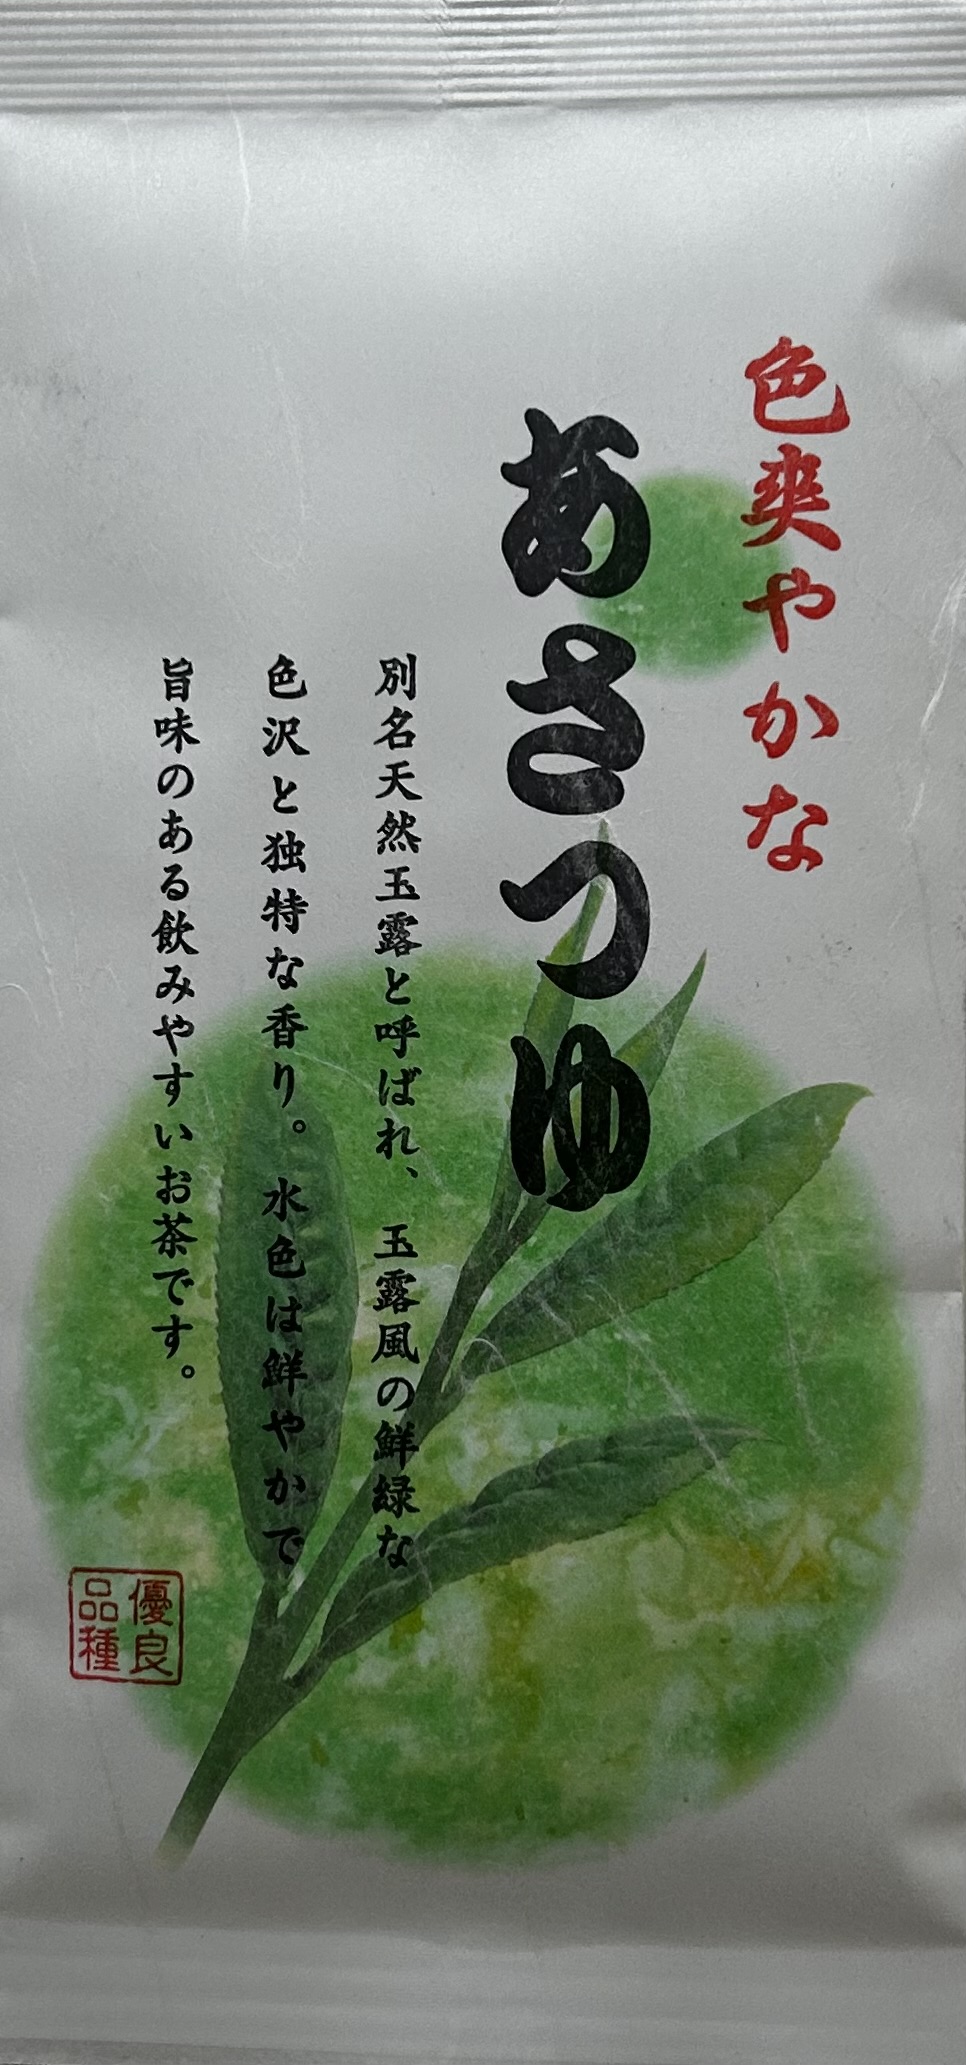 色爽やかな
あさつゆ
別名天然玉露と呼ばれ、玉露風の鮮緑な
色沢と独特な香り。水色は鮮やかで
旨味のある飲みやすいお茶です。
優良
品種